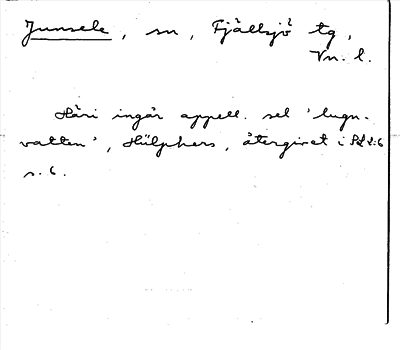 Junsele, sn, Fjällsjö tg,
Vn. l.
Häri ingår appell. sel 'lugn-
vatten', Hülphers, återgivet i SL 2:6
s. 6.